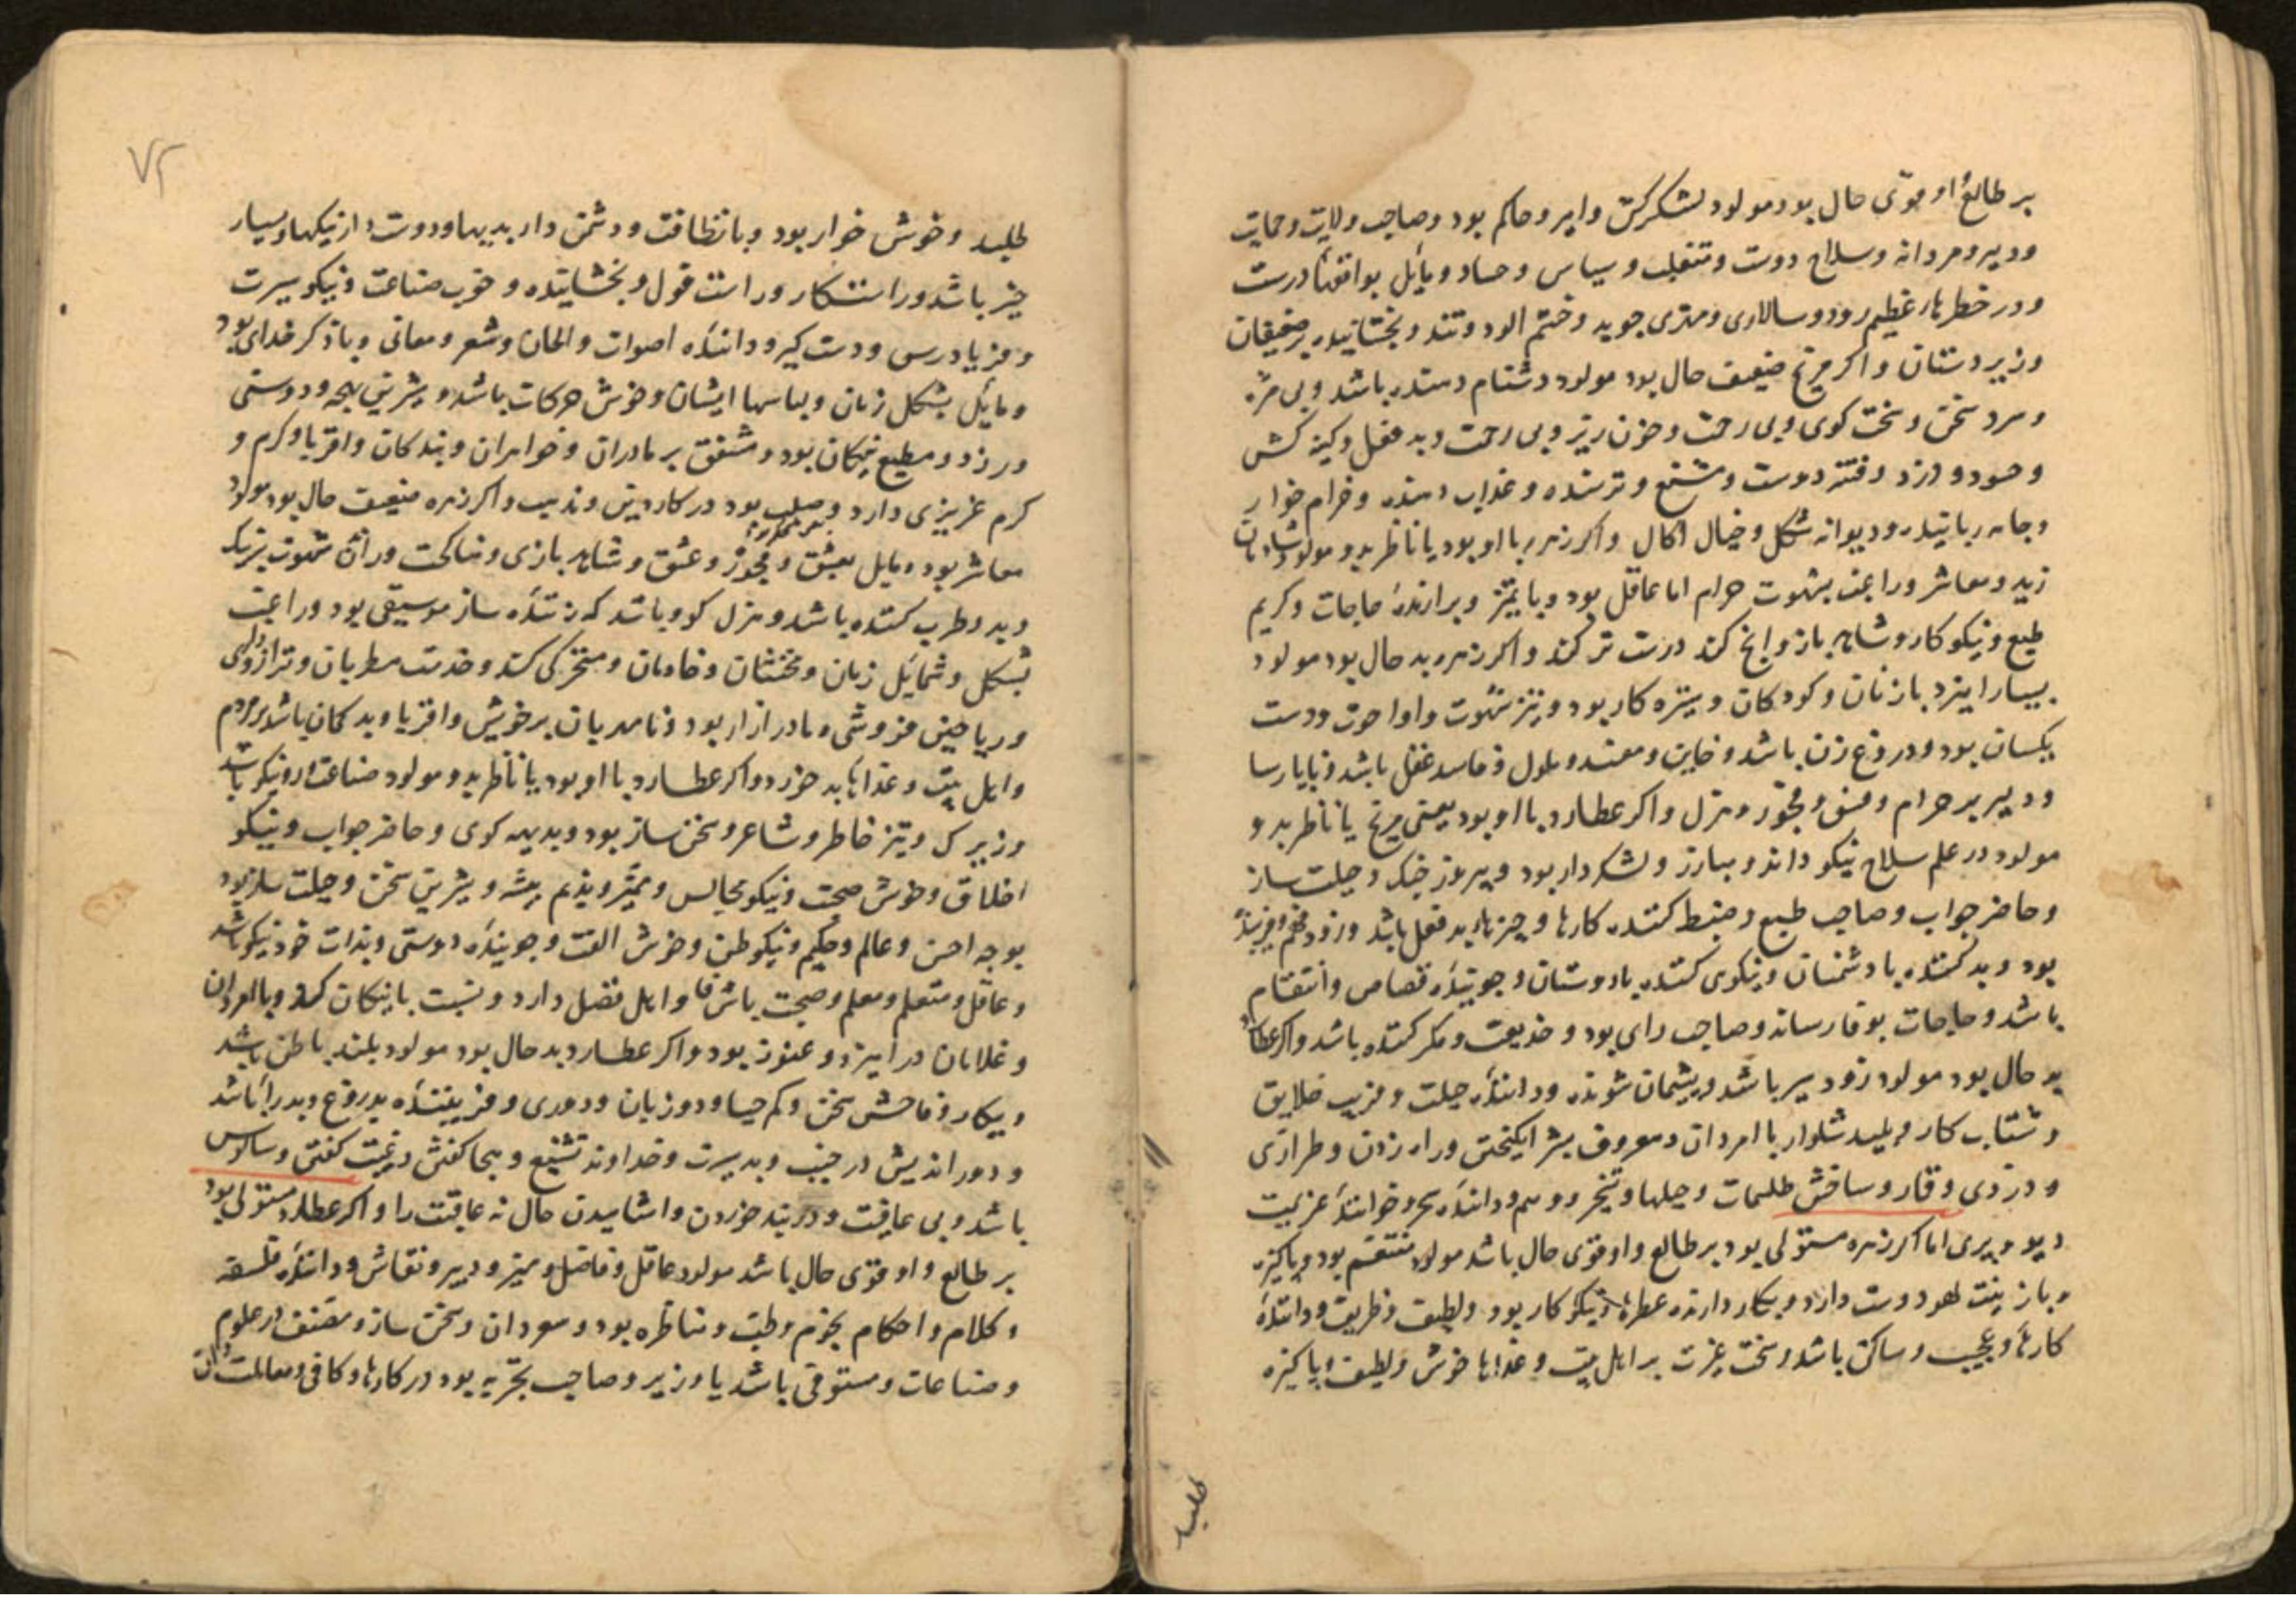 بر طالع او قوی حال بود مولود لشکرکش و امیر و حاکم بود و صاحب ولایت و حمایت
و دبیر و مردانه و سلاح دوست و متغلب و سیاس و حساد و مایل بوافقها درست
و در خطرهاء عظیم رود و سالاری و مهتری جوید و خشم الود و تند و بخشاینده بر ضعیفان
و زیردستان و اکر مریخ ضعیف حال بود مولود دشنام دهنده باشد و بی مزه
و سرد سخن و سخت کوی و بی رحمت و خون ریز و بی رحمت و بد فعل و کینه کش
و حسود و دزد و فتنه دوست و مشنع و ترسنده و عذاب دهنده و حرام خوار
و جامه رباینده و دیوانه شکل و خیال اکال و اکر زهره با او بود یا ناظر بدو مولود شادمان
زید و معاشر و راغب بشهوت حرام اما عاقل بود و با تمیز و برارنده حاجات و کریم
طبع و نیکو کار و شاهد باز و انچ کند درست تر کند و اکر زهره بد حال بود مولود
بسیار امیزد با زنان و کودکان و ستیزه کار بود و تیز شهوت و ودست
یکسان بود و دروغ زن باشد و خاین و مفسد و ملول و فاسد عقل باشد و ناپارسا
و دلیر بر حرام و فسق و فجور و هزل و اکر عطارد با او بود یعنی مریخ یا ناظر بدو
مولود در علم سلاح نیکو داند و مبارز و لشکردار بود و پیروز جنک و حیلت ساز
و حاضر جواب و صاحب طبع و ضبط کننده کارها و چیزهاء بد فعل باشد و زود فهم و فریبنده
بود و بد کننده با دشمنان و نیکوی کننده با دوستان و جوینده قصاص و انتقام
باشد و حاجات بوفا رساند و صاحب رای بود و خدیعت و مکر کننده باشد و اکر عطارد
بد حال بود مولود زود سیر باشد و پشیمان شونده و داننده حیلت و فریب خلایق
و شتاب کار و پلید شلوار با امردان و معروف بشر انکیختن و راه زدن و طراری
و دزدی و قار و ساختن طلسمات و حیلها و تنجیر و وهم و داننده سحر و خواننده عزیمت
دیو و پری اما اکر زهره مستولی بود بر طالع و او قوی حال باشد مولود متنعم بود و پاکیزه
و با زینت لهو دوست دارد و بکار دارنده عطرها و نیکو کار بود و لطیف و ظریف و داننده
کارهاء عجیب و ساکن باشد و سخت عزت بر اهل بیت و غذاها خوش و لطیف و پاکیزه
طلبد
۷۲
طلبد و خوش خوار بود و با نظافت و دشمن دار بدیها و دوست دار نیکیها و بسیار
خیر باشد و راستکار و راست قول و بخشاینده و خوب صناعت و نیکو سیرت
و فریادرس و دست کیر و داننده اصوات و الحان و شعر و معانی و با ذکر خدای بود
و مایل بشکل زنان و لباسها ایشان و خوش حرکات باشد و شیرین لهجه و دوستی
ورزد و مطیع نیکان بود و مشفق بر مادران و خواهران و بندکان و اقربا و کرم و
کرم عزیزی دارد و صلب بود در کار دین و مذهب و اکر زهره ضعیف حال بود مولود
معاشر بود و مایل بعشق و فجور و عشق و شاهد بازی و مناکحت و راندن شهوت بزرک
و بد و طرب کننده باشد و هزل کو و باشد که زننده ساز موسیقی بود و راغب
بشکل و شمایل زنان و مخنثان و خادمان و مسخرکی کند و خدمت مطربان و ترازو داری
و ریاحین فروشی و مادر ازار بود و نامهربان بر خویش و اقربا و بد کمان باشد بر مردم
و اهل بیت و غذاها بد خورد و اکر عطارد با او بود یا ناظر بدو مولود صناعت او نیکو باشد
و زیرک و تیز خاطر و شاعر و سخن ساز بود و بدیهه کوی و حاضر جواب و نیکو
اخلاق و خوش صحبت و نیکو مجالس و ممیز و ندیم پیشه و شیرین سخن و حیلت ساز بود
بوجه احسن و عالم و حکیم و نیکو ظن و خوش الفت و جوینده دوستی و بذات خود نیکو باشد
و عاقل و متعلم و معلم و صحبت با شرفا و اهل فضل دارد و نسبت با نیکان کند و با امردان
و غلامان در امیزد و بود و اکر عطارد بد حال بود مولود بلند باطن باشد
و بیکار و فاحش سخن و کم حیا و دو زبان و دوری و فریبنده بدروغ و بد را باشد
و دور اندیش در و بد سیرت و خداوند تشنیع و هجا کفتن و غیبت کفتن و سالوس
باشد و بی عاقبت و در بند خوردن و اشامیدن حال نه عاقبت را و اکر عطارد مستولی بود
بر طالع و او قوی حال باشد مولود عاقل و فاضل و ممیز و دبیر و نقاش و داننده فلسفه
و کلام و احکام نجوم و طب و مناظره بود و سرودان و سخن ساز و مصنف در علوم
و صناعات و مستوفی باشد یا وزیر و صاحب تجربه بود در کارها و کافی و معاملت دان